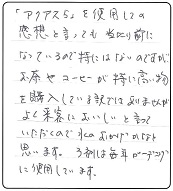 「アクアス5」を使用しての
感想と言っても 当たり前に
なっているので特にはないのですが
お茶やコーヒーが特に高い物
を購入している訳ではありませんが
よく来客においしいと言って
いただくので水のおかげかなと
思います。 3剤は毎年ガーデニング
に使用しています。